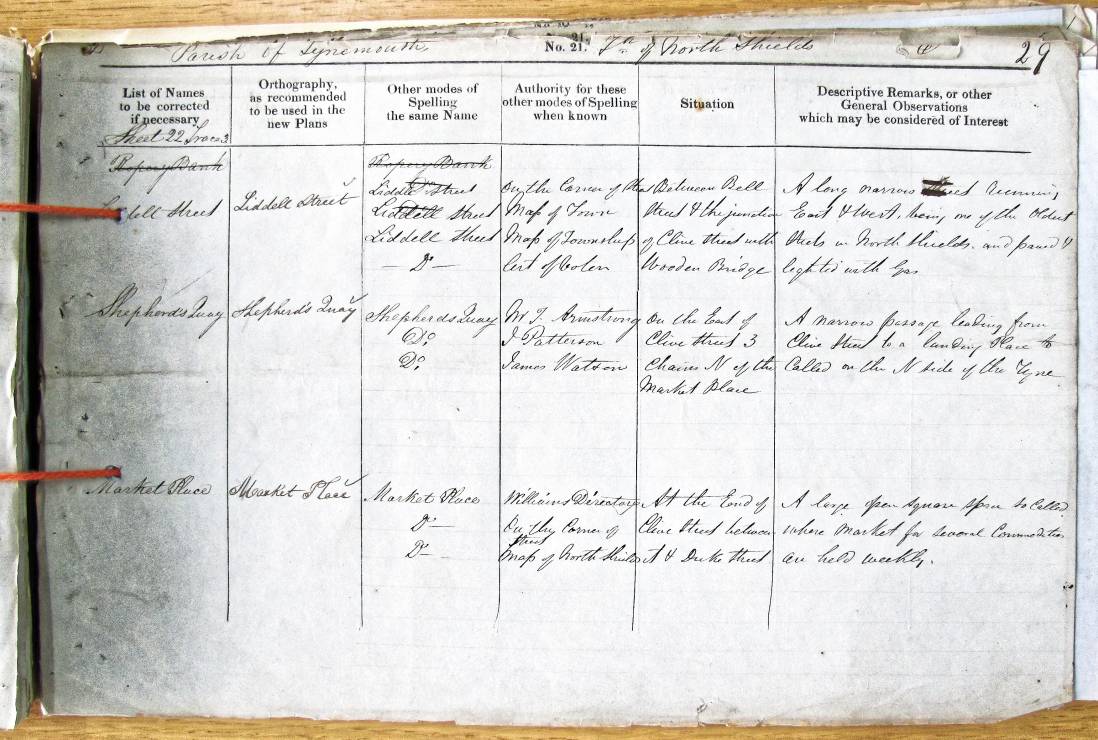 Parish of Tynemouth No. 21. Tn of North Shields 29
List of Names
to be corrected
if necessary
Orthography,
as recommended
to be used in the
new Plans
Other modes of
Spelling
the same Name
Authority for these
other modes of Spelling
when known
Situation
Descriptive Remarks, or other
General Observations
which may be considered of Interest
Sheet 22 Trace 3
Ropery Bank
Street
Liddell Street
Ropery Bank
Liddle Street
Liddell Street
Liddell Street
— Do —
On the Corner of
Map of Town
Map of Township
Between Bell
Street & the junction
of Clive Street with
Wooden Bridge
A long narrow Street running
East & West, being one of the Oldest
Streets in North Shields. and paved &
lighted with Gas
Shepherd's Quay
Shepherd's Quay
Shepherds Quay
Do.
Do.
W. J. Armstrong
J Patterson
James Watson
On the East of
Clive Street 3
Chains N of the
Market Place
A narrow passage leading from
Clive Street to a landing Place so
Called on the N side of the Tyne
Market Place
Market Place
Market Place
Do —
Do —
Williams Directory
On the Corner of
Street
Map of North Shields
At the End of
Clive Street between
it & Duke Street
A large open square space so Called
where Market for several Commodities
are held weekly.